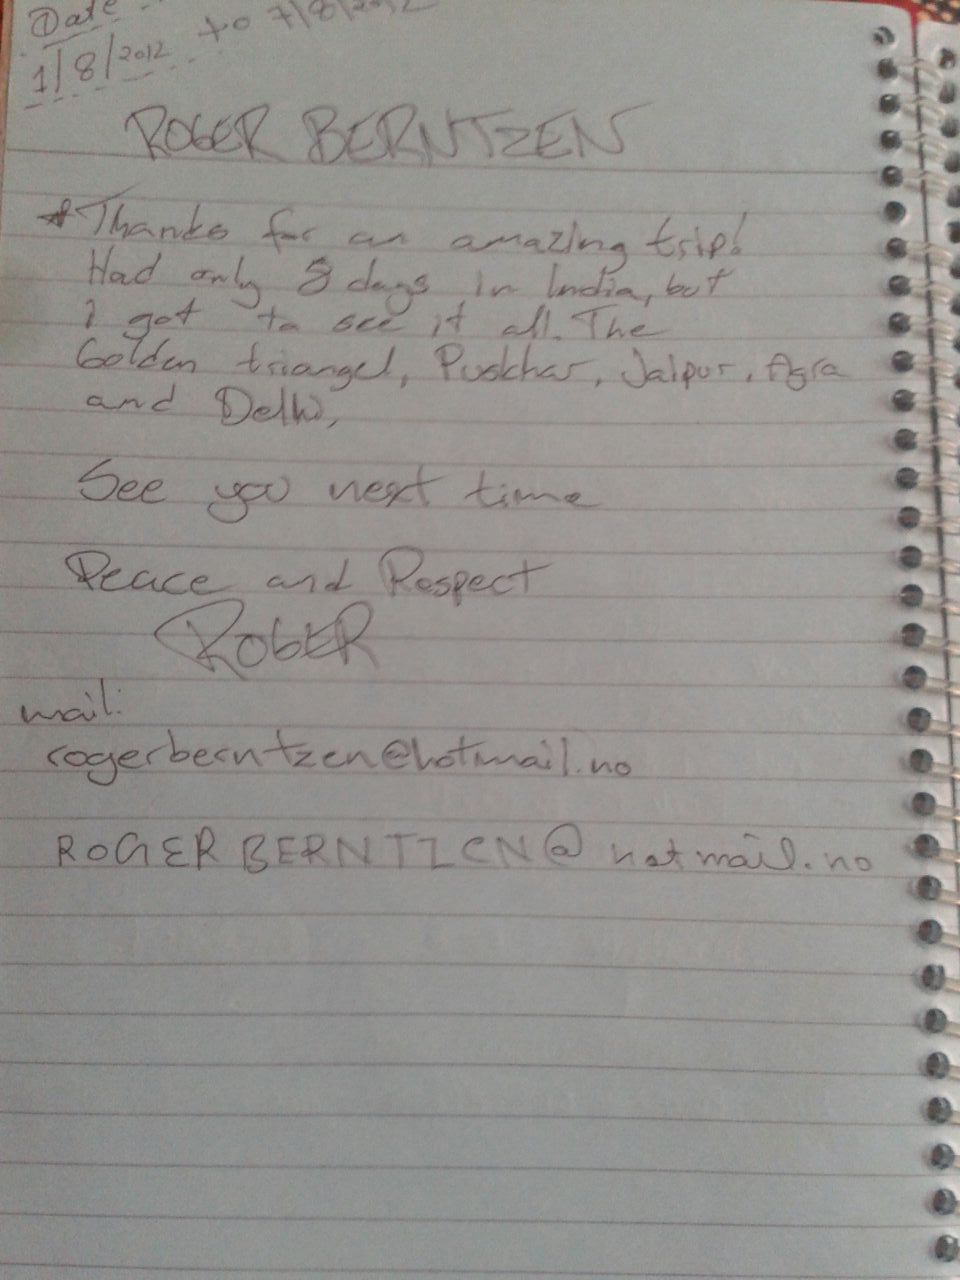 Date -
1/8/2012 to 7/8/2012
ROGER BERNTZEN
*Thanks for an amazing trip!
Had only 8 days in India, but
I got to see it all. The
Golden triangel, Puskhar, Jaipur, Agra
and Delhi,
See you next time
Peace and Respect
ROGER
mail:
rogerberntzen@hotmail.no
ROGER BERNTZEN@hotmail.no